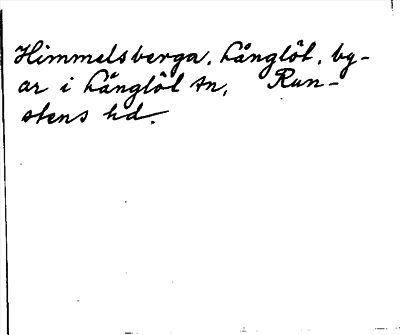 Himmelsberga, Långlöt, by-
ar i Långlöt sn, Run-
stens hd.